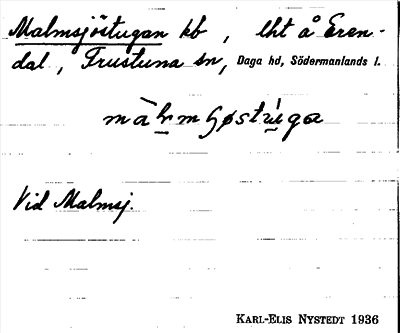 Malmsjöstugan kb, lht å Eren-
dal, Frustuna sn, Daga hd, Södermanlands l.
Vid Malmsj.
KARL-ELIS NYSTEDT 1936